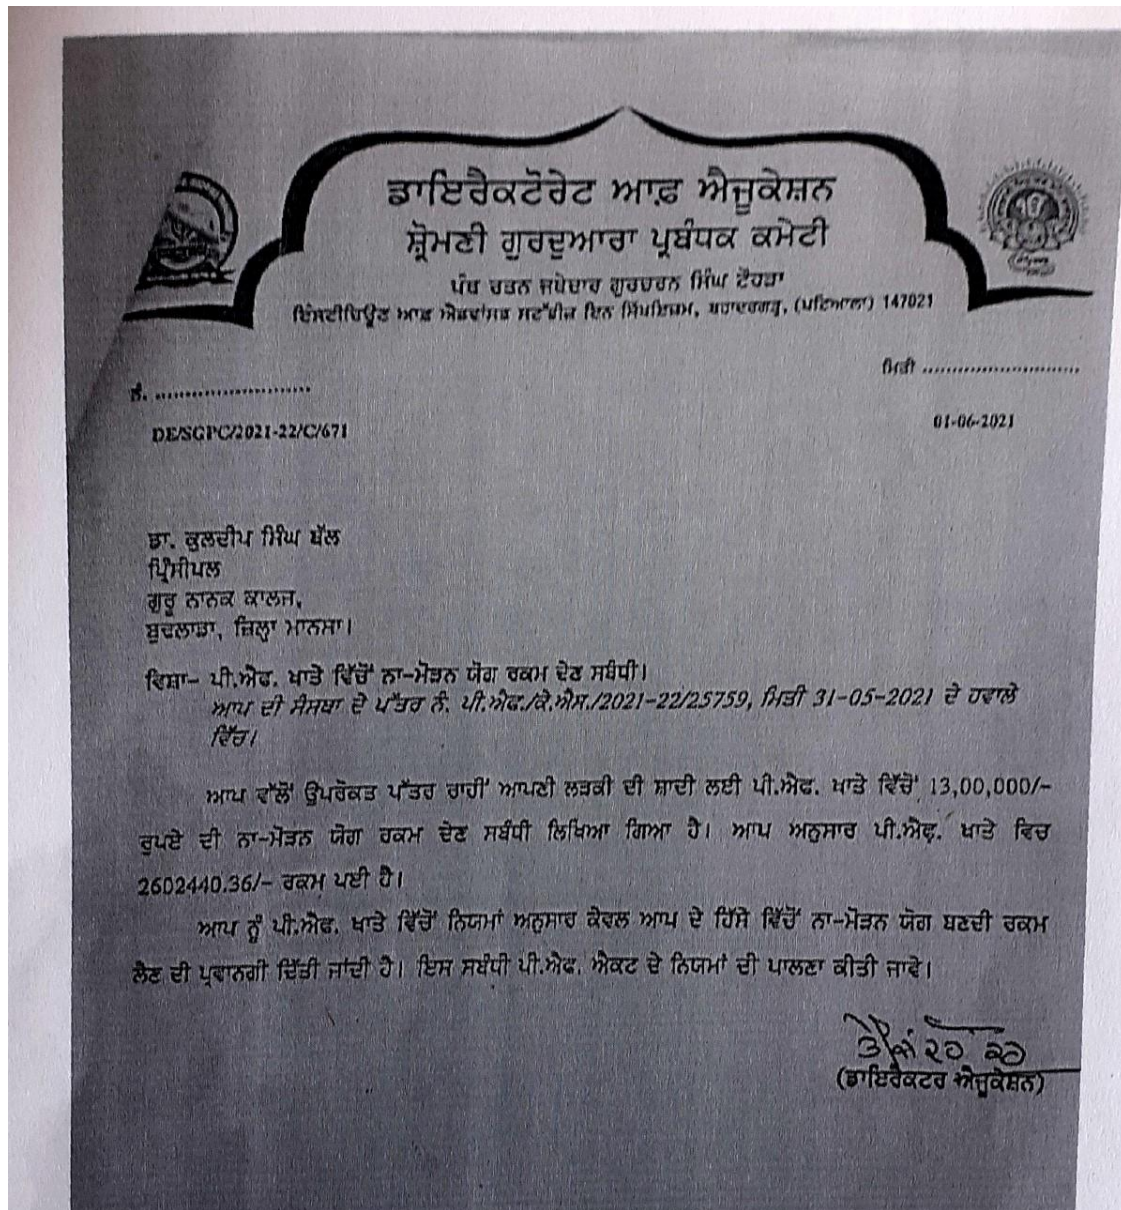 ਡਾਇਰੈਕਟੋਰੇਟ ਆਫ਼ ਐਜੂਕੇਸ਼ਨ
ਸ਼੍ਰੋਮਣੀ ਗੁਰਦੁਆਰਾ ਪ੍ਰਬੰਧਕ ਕਮੇਟੀ
ਪੰਥ ਰਤਨ ਜਥੇਦਾਰ ਗੁਰਚਰਨ ਸਿੰਘ ਟੌਹੜਾ
ਇੰਸਟੀਚਿਊਟ ਆਫ਼ ਐਡਵਾਂਸਡ ਸਟੱਡੀਜ਼ ਇਨ ਸਿੱਖਇਜ਼ਮ, ਬਹਾਦਰਗੜ੍ਹ, (ਪਟਿਆਲਾ) 147021
ਮਿਤੀ ............................
ਨੰ. ..........................
DE/SGPC/2021-22/C/671
01-06-2021
ਡਾ. ਕੁਲਦੀਪ ਸਿੰਘ ਬੱਲ
ਪ੍ਰਿੰਸੀਪਲ
ਗੁਰੂ ਨਾਨਕ ਕਾਲਜ,
ਬੁਢਲਾਡਾ, ਜ਼ਿਲ੍ਹਾ ਮਾਨਸਾ।
ਵਿਸ਼ਾ- ਪੀ.ਐਫ. ਖਾਤੇ ਵਿੱਚੋਂ ਨਾ-ਮੋੜਨ ਯੋਗ ਰਕਮ ਦੇਣ ਸਬੰਧੀ।
ਆਪ ਦੀ ਸੰਸਥਾ ਦੇ ਪੱਤਰ ਨੰ. ਪੀ.ਐਫ./ਕੇ.ਐਸ./2021-22/25759, ਮਿਤੀ 31-05-2021 ਦੇ ਹਵਾਲੇ
ਵਿੱਚ।
ਆਪ ਵੱਲੋਂ ਉਪਰੋਕਤ ਪੱਤਰ ਰਾਹੀਂ ਆਪਣੀ ਲੜਕੀ ਦੀ ਸ਼ਾਦੀ ਲਈ ਪੀ.ਐਫ. ਖਾਤੇ ਵਿੱਚੋਂ 13,00,000/-
ਰੁਪਏ ਦੀ ਨਾ-ਮੋੜਨ ਯੋਗ ਰਕਮ ਦੇਣ ਸਬੰਧੀ ਲਿਖਿਆ ਗਿਆ ਹੈ। ਆਪ ਅਨੁਸਾਰ ਪੀ.ਐਫ. ਖਾਤੇ ਵਿਚ
2602440.36/- ਰਕਮ ਪਈ ਹੈ।
ਆਪ ਨੂੰ ਪੀ.ਐਫ. ਖਾਤੇ ਵਿੱਚੋਂ ਨਿਯਮਾਂ ਅਨੁਸਾਰ ਕੇਵਲ ਆਪ ਦੇ ਹਿੱਸੇ ਵਿੱਚੋਂ ਨਾ-ਮੋੜਨ ਯੋਗ ਬਣਦੀ ਰਕਮ
ਲੈਣ ਦੀ ਪ੍ਰਵਾਨਗੀ ਦਿੱਤੀ ਜਾਂਦੀ ਹੈ। ਇਸ ਸਬੰਧੀ ਪੀ.ਐਫ. ਐਕਟ ਦੇ ਨਿਯਮਾਂ ਦੀ ਪਾਲਣਾ ਕੀਤੀ ਜਾਵੇ।
(ਡਾਇਰੈਕਟਰ ਐਜੂਕੇਸ਼ਨ)